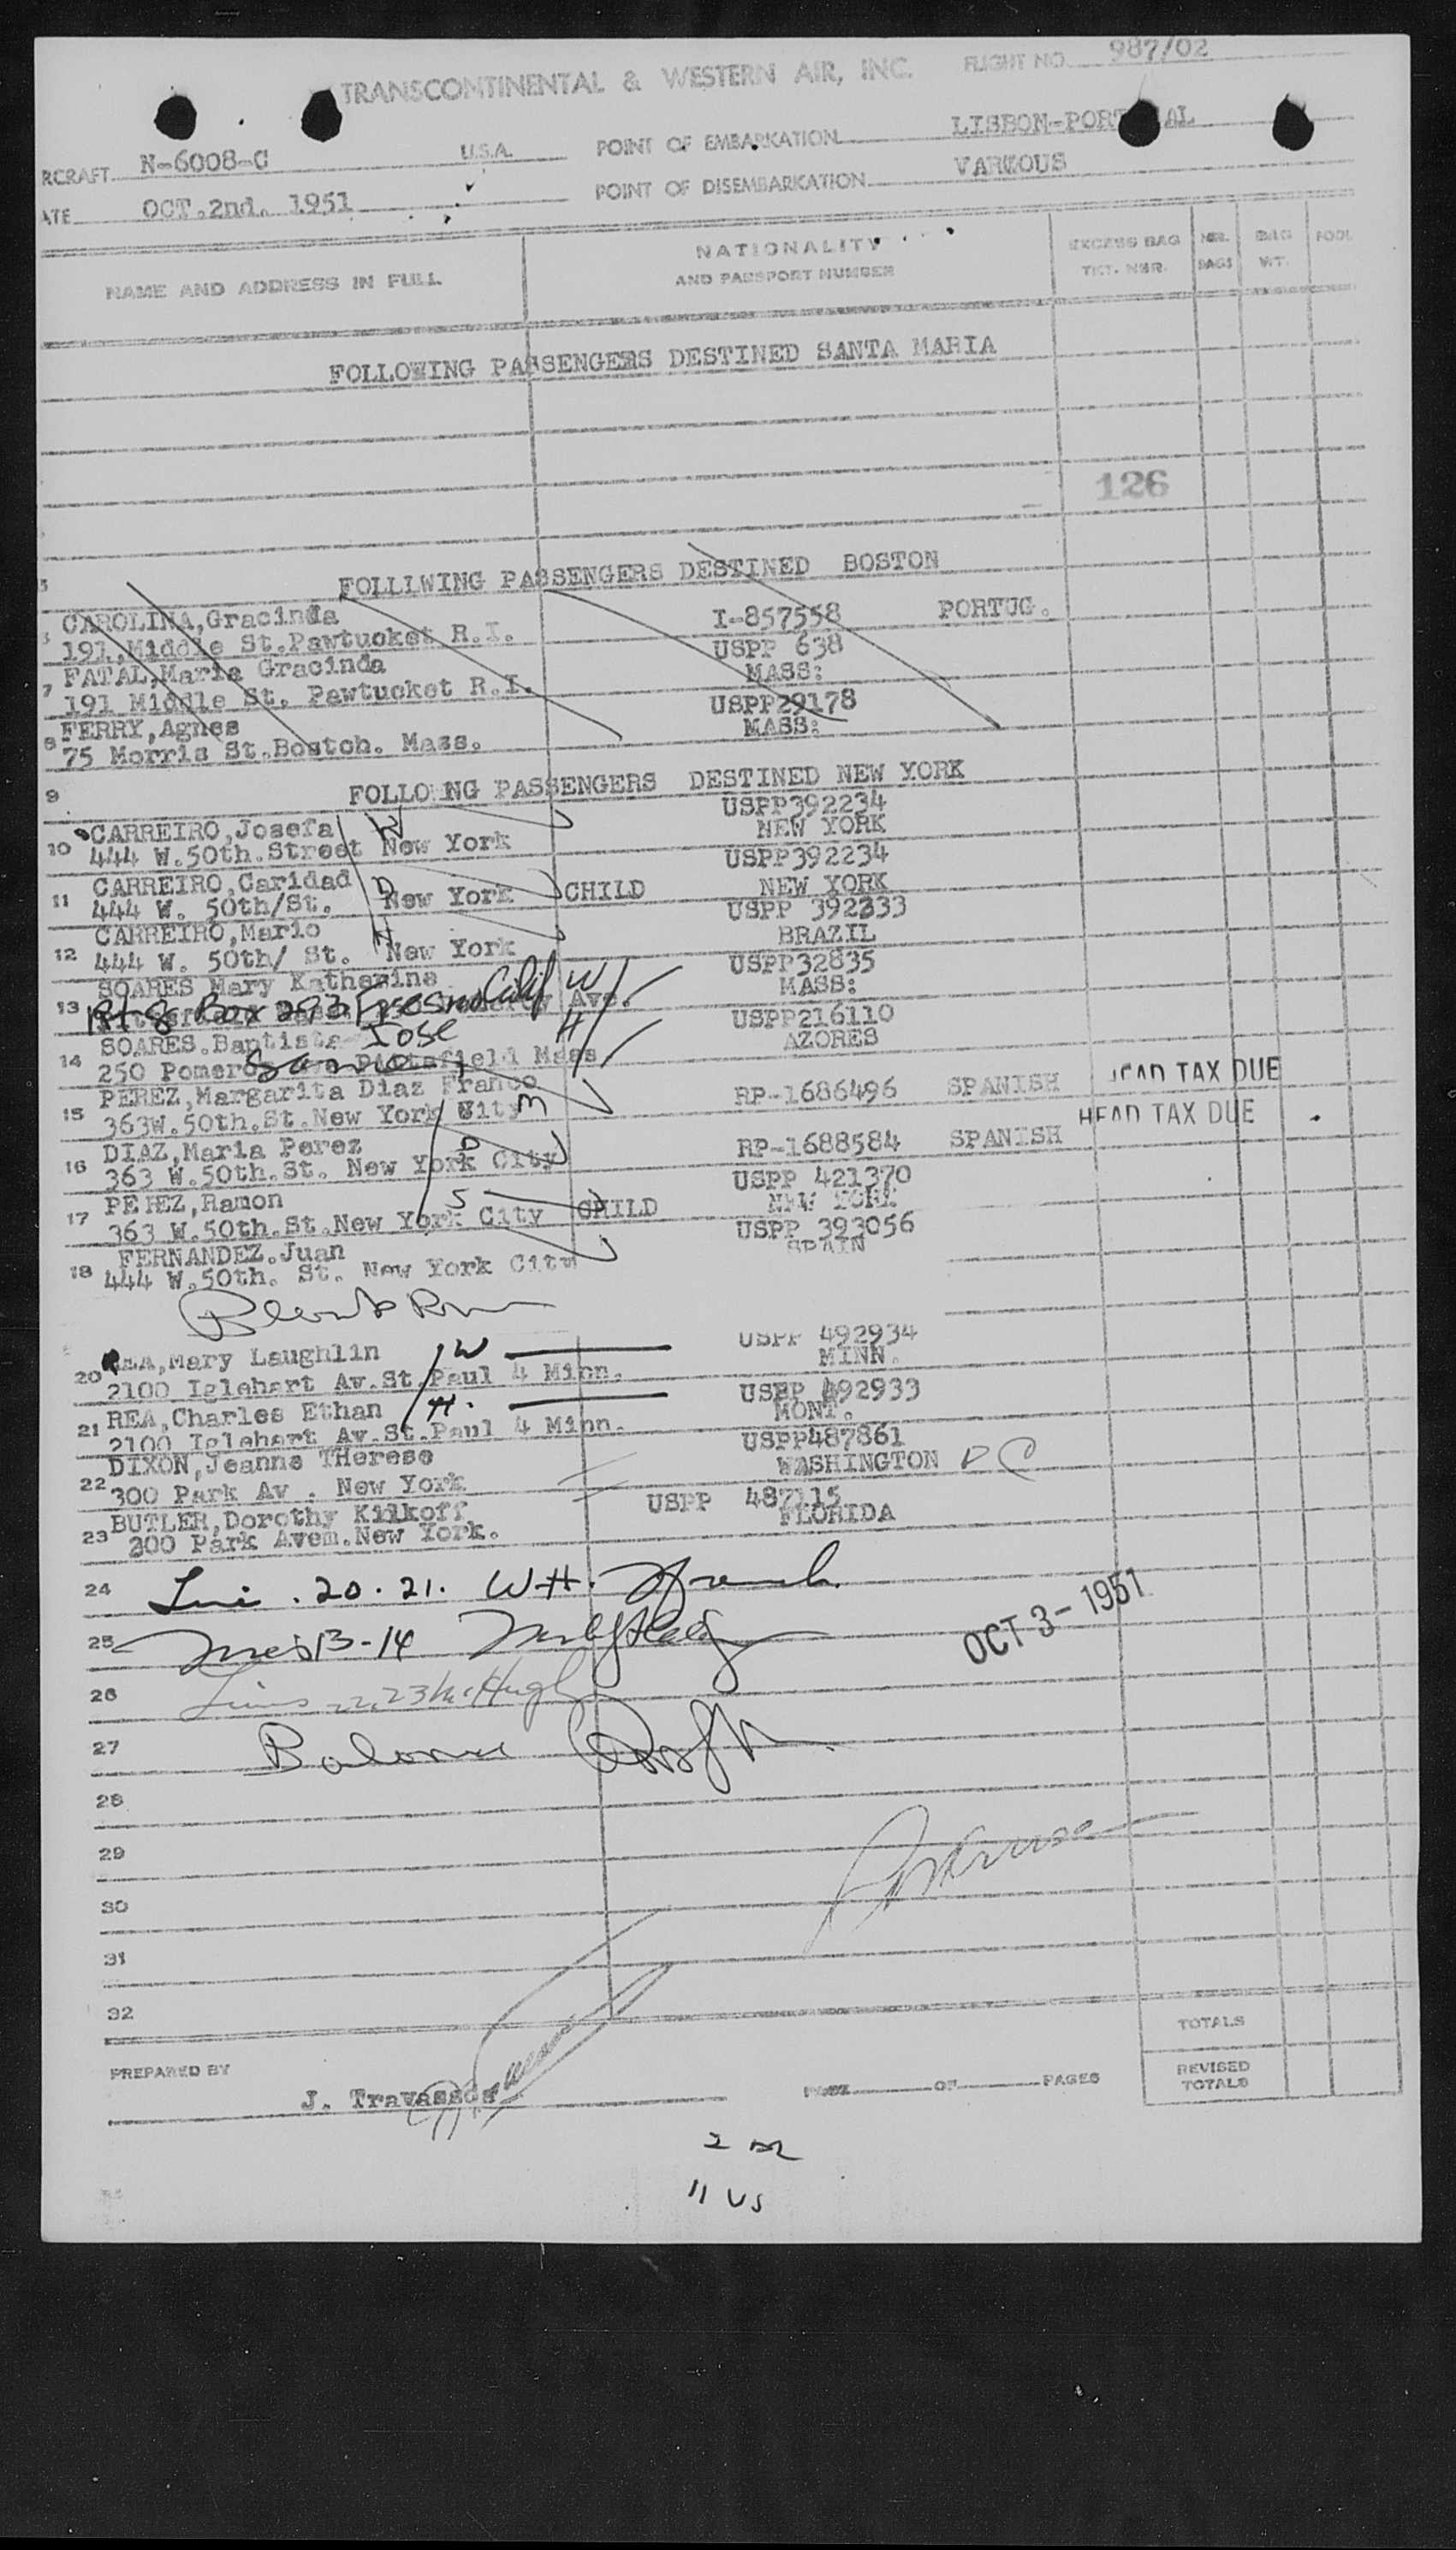 TRANSCONTINENTAL & WESTERN AIR, INC. FLIGHT NO. 987/02
RCRAFT N-6008-C U.S.A. POINT OF EMBARKATION LISBON-PORT AL
ATE OCT.2nd. 1951 POINT OF DISEMBARKATION VARIOUS
NAME AND ADDRESS IN FULL NATIONALITY AND PASSPORT NUMBER EXCESS BAG TKT. NBR. NBR. BAGS BAG WT.
FOLLOWING PASSENGERS DESTINED SANTA MARIA
126
FOLLLWING PASSENGERS DESTINED BOSTON
CAROLINA,Gracinda I-857558 PORTUG.
191,Middle St.Pawtucket R.I. USPP 638
FATAL,Maria Gracinda MASS:
7 191 Middle St. Pawtucket R.I. USPP29178
FERRY,Agnes MASS:
8 75 Morris St.Bostoh. Mass.
9 FOLLO NG PASSENGERS DESTINED NEW YORK
CARREIRO,Josefa W USPP392234
10 444 W.50th.Street New York NEW YORK
CARREIRO,Caridad D USPP392234
11 444 W. 50th/St. New York CHILD NEW YORK
CARREIRO,Mario H USPP 392233
12 444 W. 50th/ St. New York BRAZIL
SOARES Mary Katherine W USPP32835
13 Rt-8 Box 293 Fresno Calif Ave. MASS:
SOARES.Baptista Jose H USPP216110
14 250 Pomeroy Same Pittsfield Mass AZORES
PEREZ,Margarita Diaz Franco
15 363W.50th.St.New York City M RP-1686496 SPANISH HEAD TAX DUE
DIAZ,Maria Perez D HEAD TAX DUE
16 363 W.50th.St. New York City RP-1688584 SPANISH
PEREZ,Ramon S USPP 421370
17 363 W.50th.St.New York City CHILD NEW YORK
FERNANDEZ.Juan USPP 393056
18 444 W.50th. St. New York City SPAIN
REA,Mary Laughlin W USPP 492934
20 2100 Iglehart Av.St.Paul 4 Minn. MINN.
REA,Charles Ethan H. USPP 492933
21 2100 Iglehart Av.St.Paul 4 Minn. MONT.
DIXON,Jeanne THerese USPP487861
22 300 Park Av . New York WASHINGTON D C
BUTLER,Dorothy Kilkoff USPP 487115
23 300 Park Avem.New York. FLORIDA
24 20. 21. W.H.
25 13-14 OCT 3- 1951
26 Lines 22,23 McHugh
27 Balance
28
29
30
31
32
TOTALS
PREPARED BY J. Travassos PAGE OF PAGES REVISED TOTALS
2
11 US